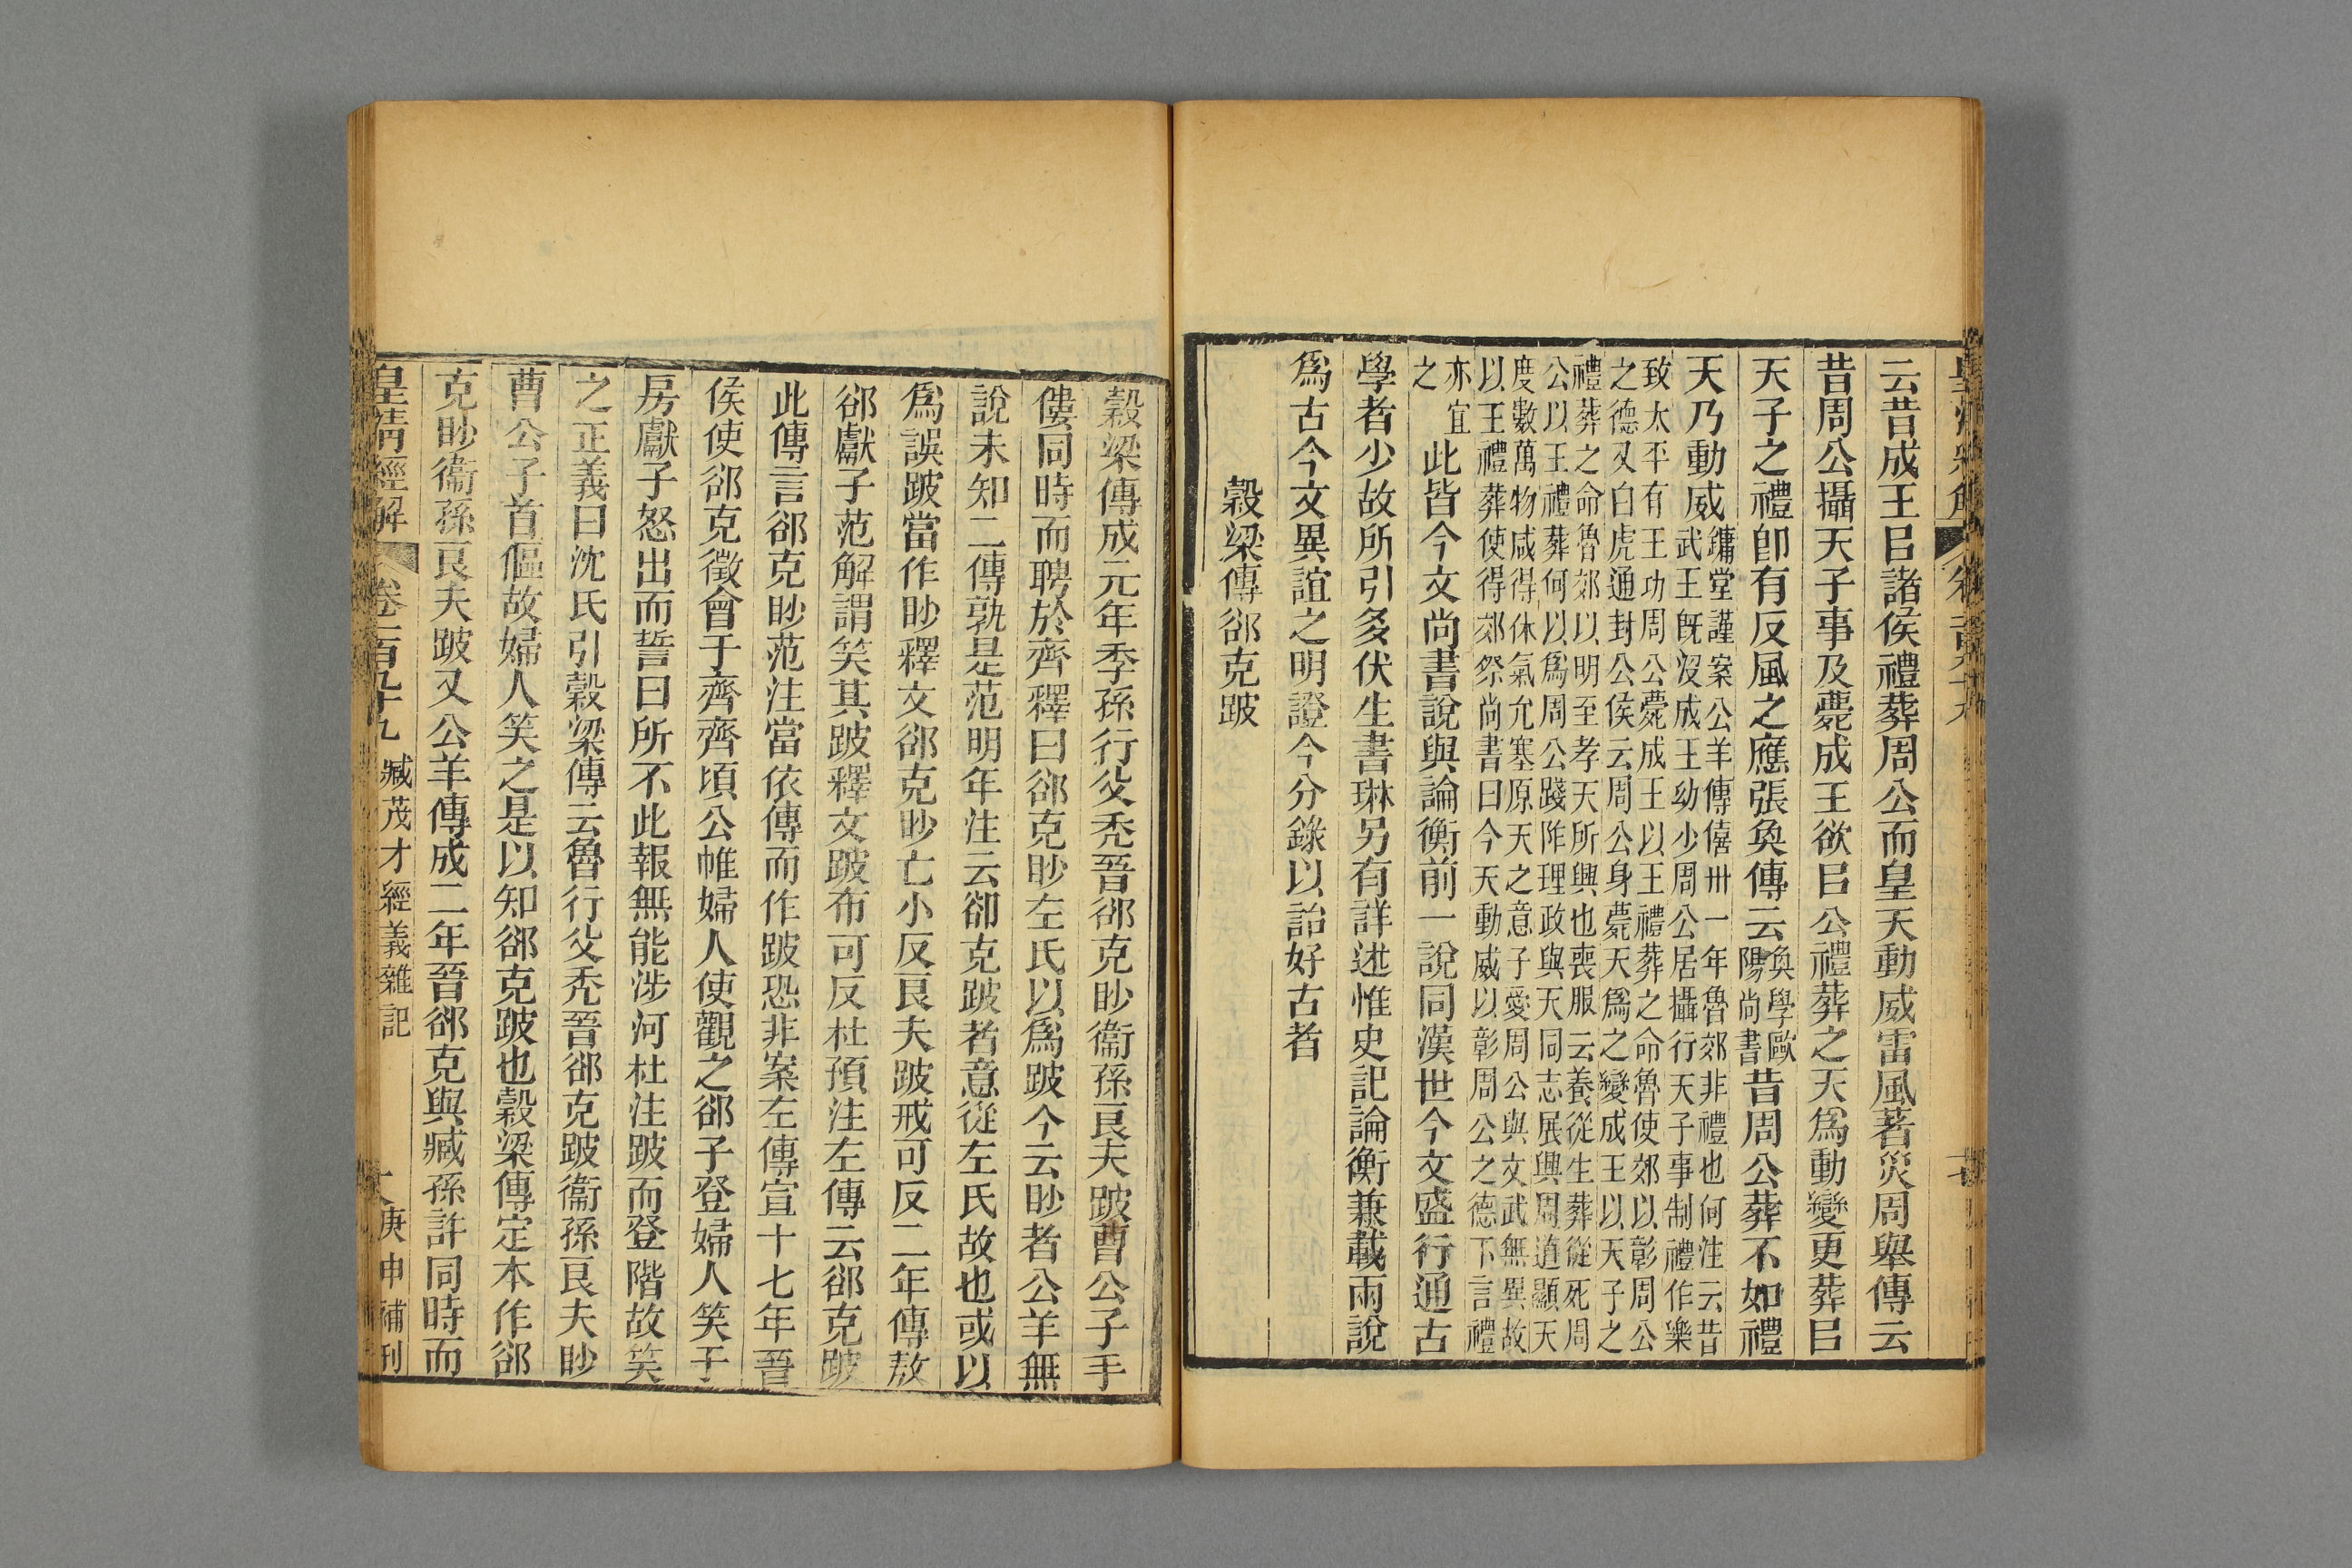 云昔成王㠯諸侯禮葬周公而皇天動威雷風著災周舉傳云
昔周公攝天子事及薨成王欲㠯公禮葬之天爲動變更葬㠯
天子之禮卽有反風之應張奐傳云奐學歐陽尚書昔周公葬不如禮
天乃動威鏞堂謹案公羊傳僖卅一年魯郊非禮也何注云昔武王旣沒成王幼少周公居攝行天子事制禮作樂
致太平有王功周公薨成王以王禮葬之命魯使郊以彰周公之德又白虎通封公侯云周公身薨天爲之變成王以天子之
禮葬之命魯郊以明至孝天所興也喪服云養從生葬從死周公以王禮葬何以爲周公踐阼理政與天同志展興周道顯天
度數萬物咸得休氣允塞原天之意子愛周公與文武無異故以王禮葬使得郊祭尚書曰今天動威以彰周公之德下言禮
亦宜之此皆今文尚書說與論衡前一說同漢世今文盛行通古
學者少故所引多伏生書琳另有詳述惟史記論衡兼載兩說
爲古今文異誼之明證今分錄以詒好古者
穀梁傳郤克跛
穀梁傳成元年季孫行父禿晉郤克眇衞孫良夫跛曹公子手
僂同時而聘於齊釋曰郤克眇左氏以爲跛今云眇者公羊無
說未知二傳孰是范明年注云郤克跛者意從左氏故也或以
爲誤跛當作眇釋文郤克眇亡小反良夫跛戒可反二年傳敖
郤獻子范解謂笑其跛釋文跛布可反杜預注左傳云郤克跛
此傳言郤克眇范注當依傳而作跛恐非案左傳宣十七年晉
侯使郤克徵會于齊齊頃公帷婦人使觀之郤子登婦人笑于
房獻子怒出而誓曰所不此報無能涉河杜注跛而登階故笑
之正義曰沈氏引穀梁傳云魯行父禿晉郤克跛衞孫良夫眇
曹公子首傴故婦人笑之是以知郤克跛也穀梁傳定本作郤
克眇衞孫良夫跛又公羊傳成二年晉郤克與臧孫許同時而
皇淸經解 卷一百九十九 臧茂才經義雜記 庚申補刊